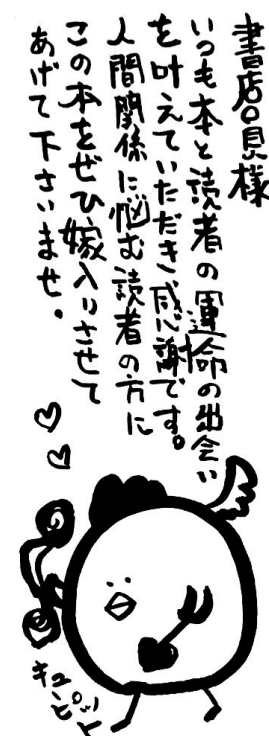 書店員様
いつも本と読者の運命の出会い
を叶えていただき感謝です。
人間関係に悩む読者の方に
この本をぜひ嫁入りさせて
あげて下さいませ。
キュー
ピッ
ト